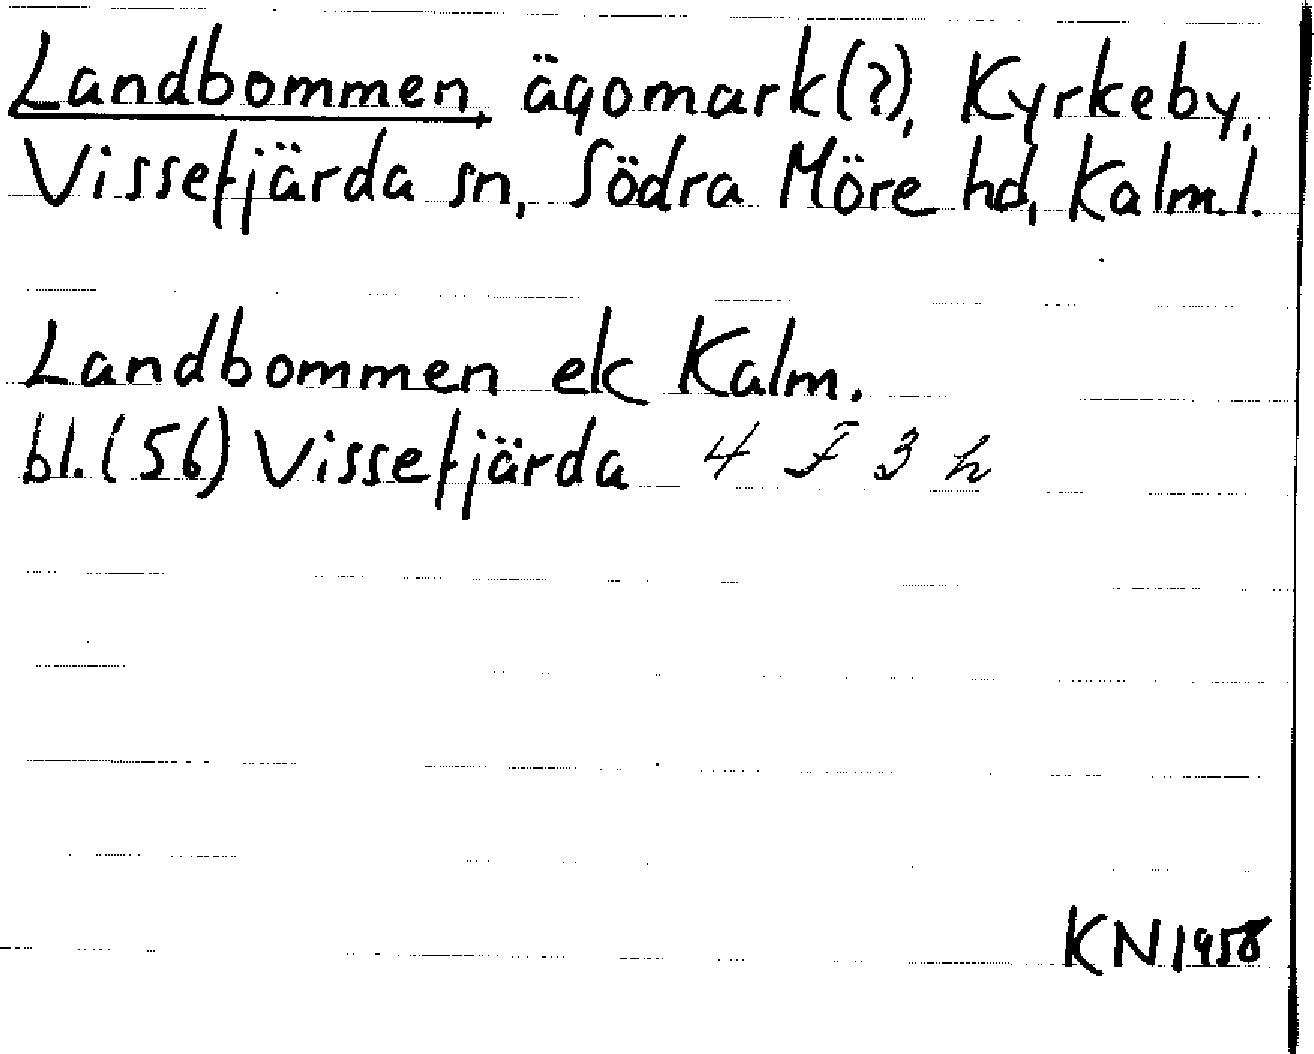 Landbommen, ägomark(?), Kyrkeby,
Vissefjärda sn, Södra Möre hd, Kalm.l.
Landbommen ek Kalm.
bl.(56) Vissefjärda 4 F 3 h
KN1958